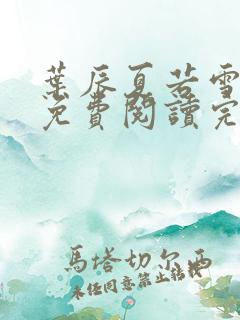 葉辰夏若雪
免費閱讀完
馬塔切尔西
未任同意禁止转载